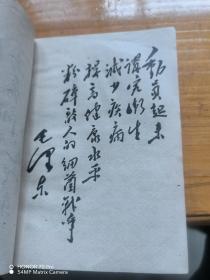 动员起来
讲究卫生
减少疾病
提高健康水平
粉碎敌人的细菌战争
毛泽东
REDMI K50 PRO
54MP Matrix Camera